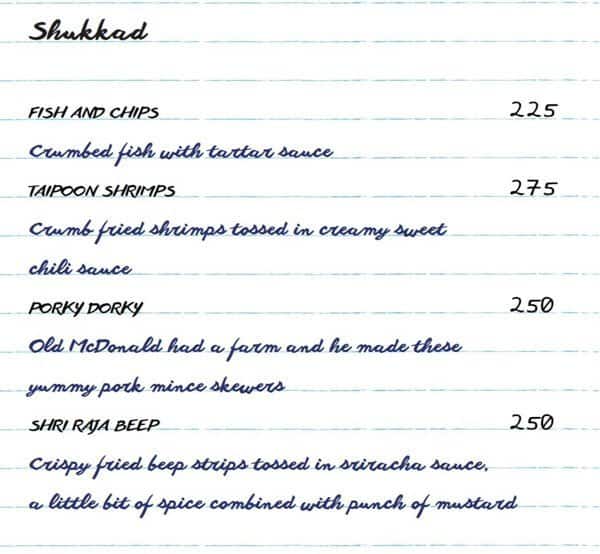 Shukkad
FISH AND CHIPS 225
Crumbed fish with tartar sauce
TAIPOON SHRIMPS 275
Crumb fried shrimps tossed in creamy sweet
chili sauce
PORKY DORKY 250
Old McDonald had a farm and he made these
yummy pork mince skewers
SHRI RAJA BEEP 250
Crispy fried beep strips tossed in sriracha sauce,
a little bit of spice combined with punch of mustard